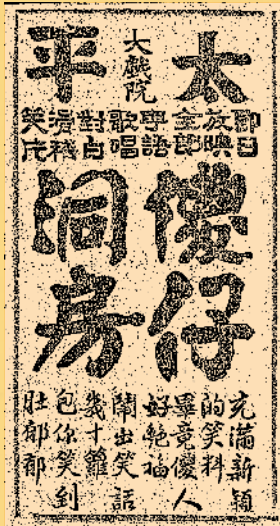 太平
大戲院
即日放映全部粵語歌唱對白滑稽笑片
傻仔
洞房
充滿新穎
的笑料
畢竟傻人
好艶福
鬧出笑話
幾十籮
包你笑到
肚郁郁